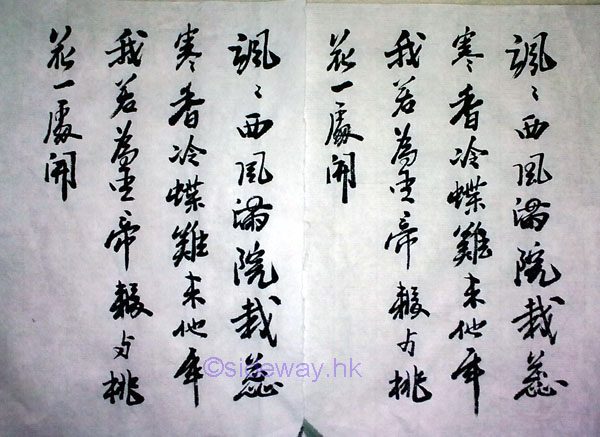 颯〻西風滿院栽蕊
寒香冷蝶難来他年
我若為青帝報与桃
花一處開
颯〻西風滿院栽蕊
寒香冷蝶難来他年
我若為青帝報与桃
花一處開
©sideway.hk